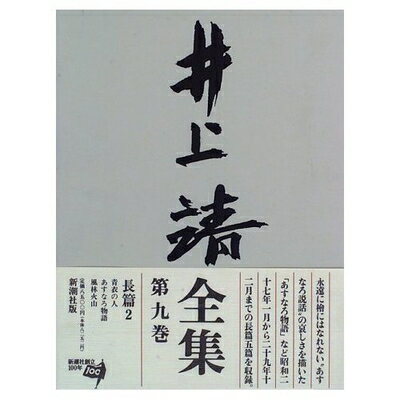 井上靖
全集
第九巻
永遠に檜にはなれない“あす
なろ説話”の哀しさを描いた
「あすなろ物語」など昭和二
十七年一月から二十九年十
二月までの長篇五篇を収録。
長篇2
青衣の人
あすなろ物語
風林火山
定価八五〇〇円(本体八二五二円)
新潮社版
新潮社創立
100年
100